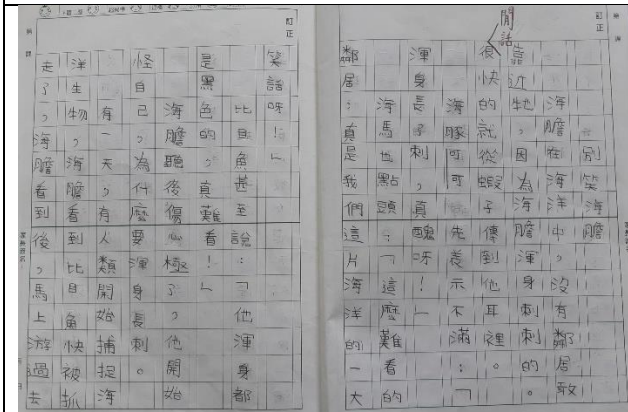 訂正
別笑海膽
海膽在海洋中,沒有鄰居敢
靠近牠,因為海膽渾身刺的。
閒話
很快的就從蝦子傳到他耳裡。
海豚可可先表示不滿:「
渾身長了刺,真醜呀!」
海馬也點頭:「這麼難看的
鄰居:真是我們這片海洋的一大
訂正
笑話呀!」
比目魚甚至說:「他渾身都
是黑色的,真難看!」
海膽聽後傷心極了,他開始
怪自己,為什麼要渾身長刺。
有一天,有人類開始捕捉海
洋生物,海膽看到比目魚快被抓
走了,海膽看到後,馬上游過去